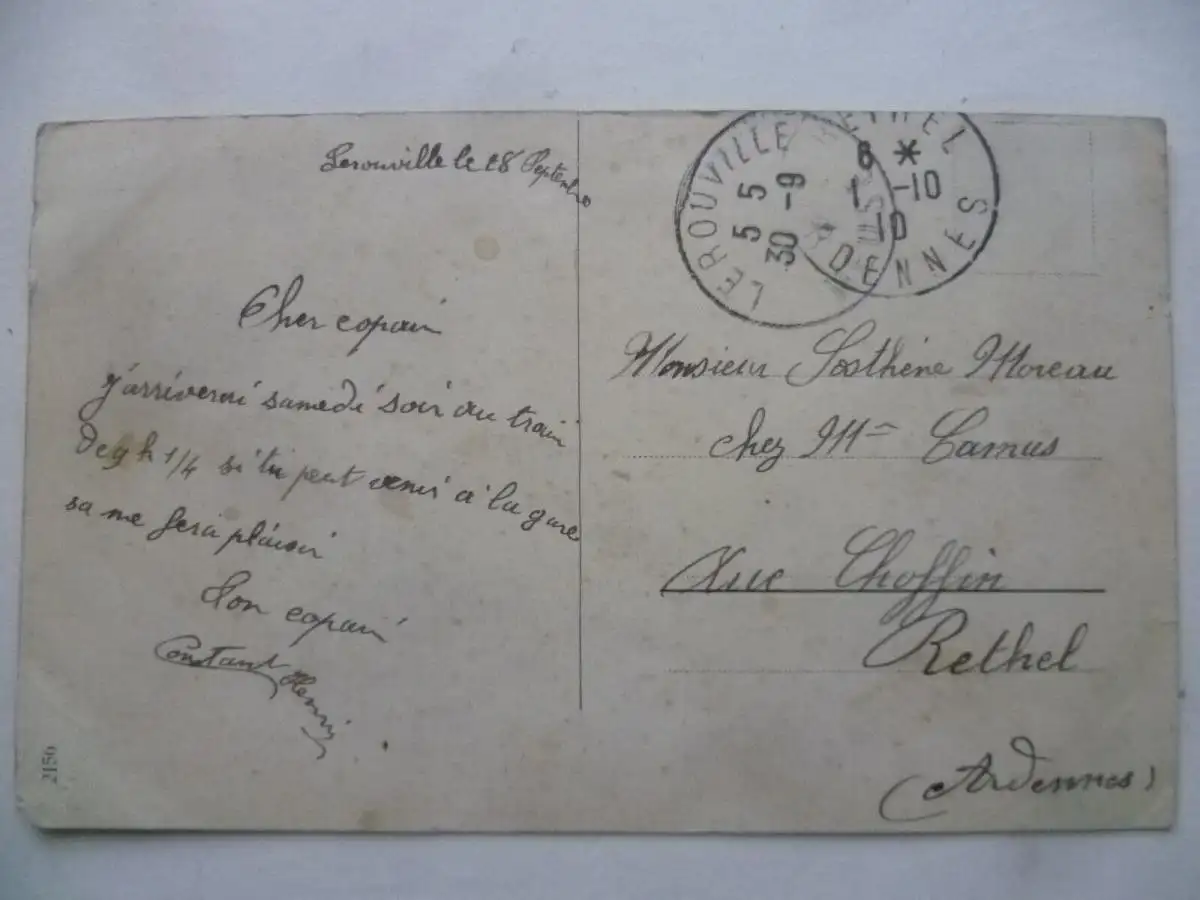 Lerouville le 28 Septembre
Cher copain
j'arriverai samedi soir au train
de 9 h 1/4 si tu peut venir à la gare
sa me fera plaisir
Ton copain
Constant Henri
2150
LEROUVILLE
5 5
30 -9
RETHEL
6 *
1 -10
10
ARDENNES
Monsieur Sosthène Moreau
chez Mme Camus
Rue Choffin
Rethel
(Ardennes)